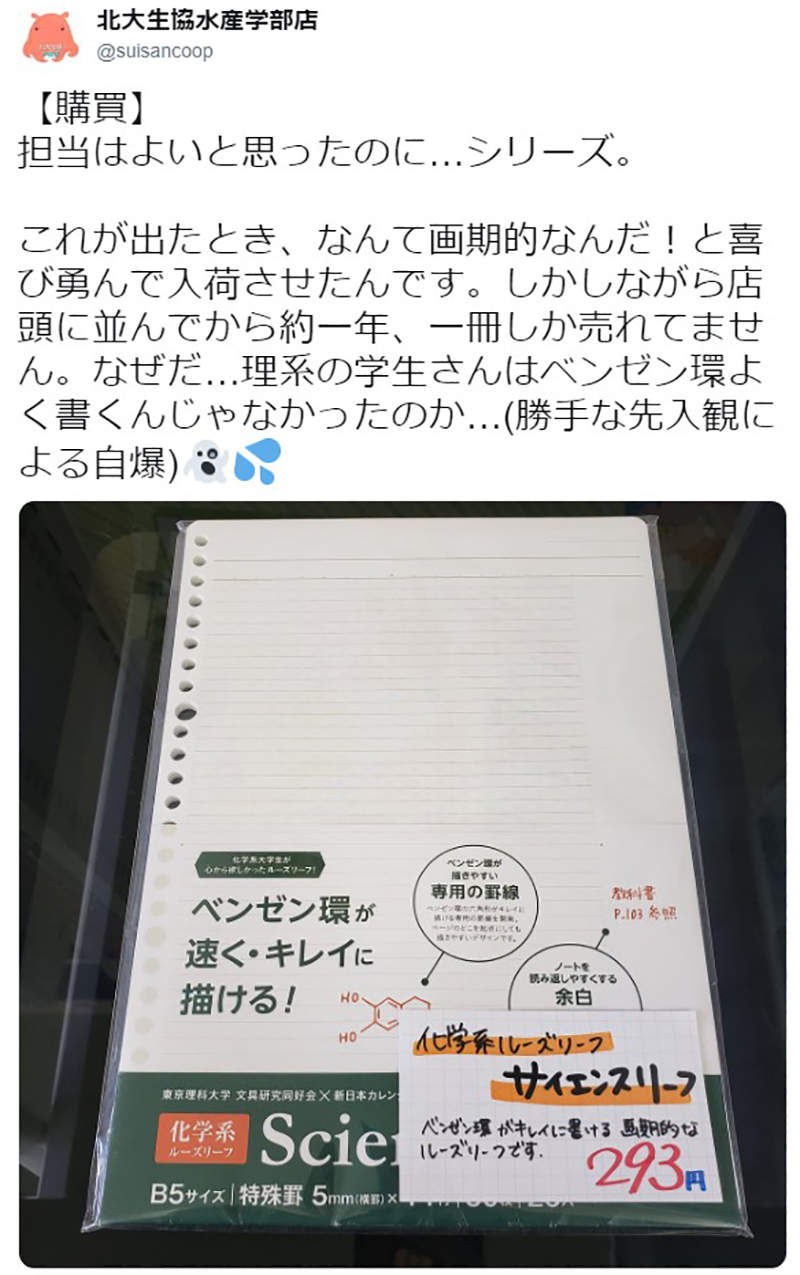 北大生協水産学部店
@suisancoop
【購買】
担当はよいと思ったのに…シリーズ。
これが出たとき、なんて画期的なんだ！と喜
び勇んで入荷させたんです。しかしながら店
頭に並んでから約一年、一冊しか売れてませ
ん。なぜだ…理系の学生さんはベンゼン環よ
く書くんじゃなかったのか…(勝手な先入観に
よる自爆)
化学系大学生が
心から欲しかったルーズリーフ！
ベンゼン環が
速く・キレイに
描ける！
ベンゼン環が
描きやすい
専用の罫線
ベンゼン環の六角形がキレイに
描ける専用の罫線を開発。
ページのどこを起点にしても
描きやすいデザインです。
教科書
P.103 参照
ノートを
読み返しやすくする
余白
HO
HO
化学系ルーズリーフ
サイエンスリーフ
ベンゼン環がキレイに書ける 画期的な
ルーズリーフです.
293円
東京理科大学 文具研究同好会×新日本カレン
化学系
ルーズリーフ
Scie
B5サイズ|特殊罫 5mm(横罫)×